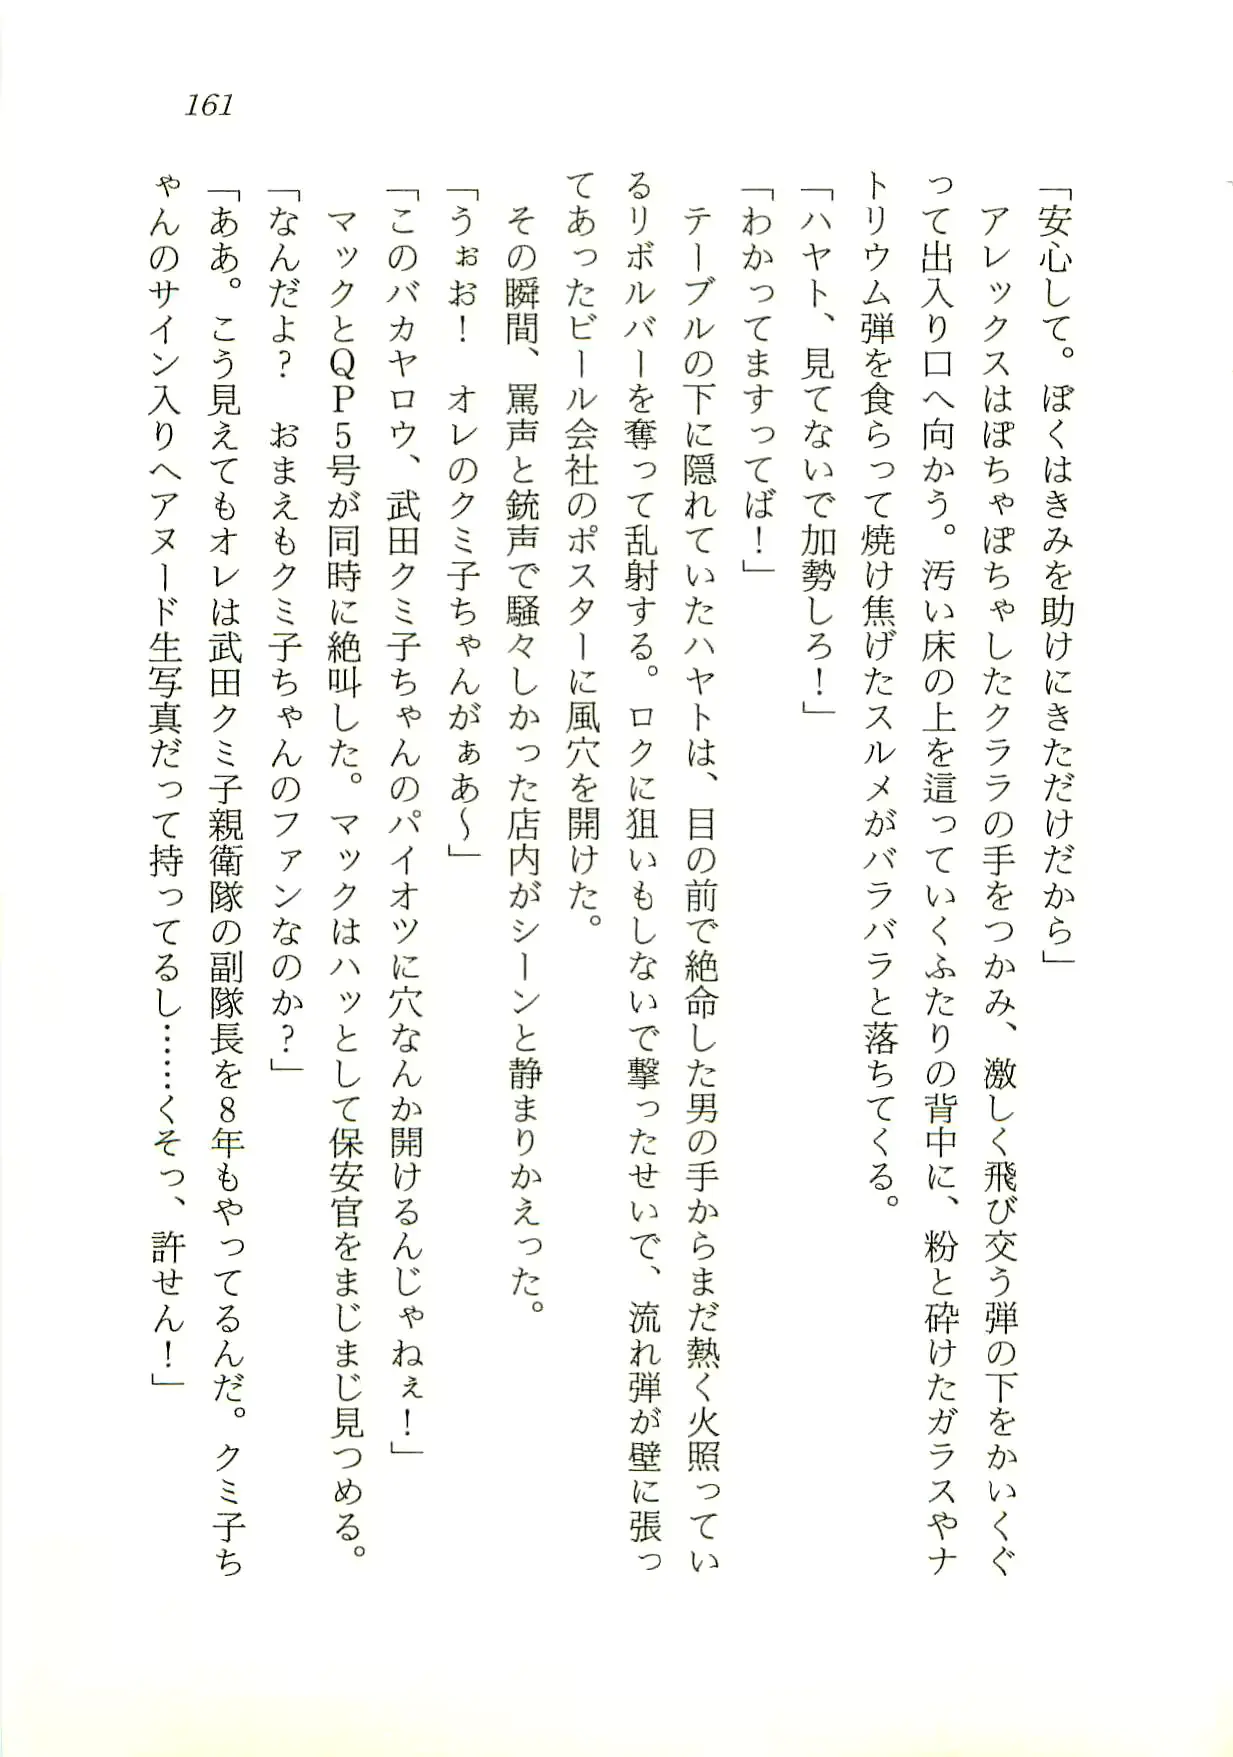 161
「安心して。ぼくはきみを助けにきただけだから」
　アレックスはぽちゃぽちゃしたクララの手をつかみ、激しく飛び交う弾の下をかいくぐ
って出入り口へ向かう。汚い床の上を這っていくふたりの背中に、粉と砕けたガラスやナ
トリウム弾を食らって焼け焦げたスルメがバラバラと落ちてくる。
「ハヤト、見てないで加勢しろ！」
「わかってますってば！」
　テーブルの下に隠れていたハヤトは、目の前で絶命した男の手からまだ熱く火照ってい
るリボルバーを奪って乱射する。ロクに狙いもしないで撃ったせいで、流れ弾が壁に張っ
てあったビール会社のポスターに風穴を開けた。
　その瞬間、罵声と銃声で騒々しかった店内がシーンと静まりかえった。
「うぉお！　オレのクミ子ちゃんがぁあ～」
「このバカヤロウ、武田クミ子ちゃんのパイオツに穴なんか開けるんじゃねぇ！」
　マックとＱＰ５号が同時に絶叫した。マックはハッとして保安官をまじまじ見つめる。
「なんだよ？　おまえもクミ子ちゃんのファンなのか？」
「ああ。こう見えてもオレは武田クミ子親衛隊の副隊長を８年もやってるんだ。クミ子ち
ゃんのサイン入りヘアヌード生写真だって持ってるし……くそっ、許せん！」